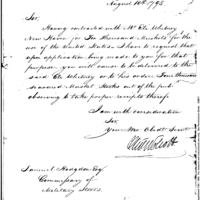 August 10th 1798
Sir,
Having contracted with Mr. Eli Whitney
New Haven for Ten thousand Muskets for the
use of the United States I have to request that
upon application being made to you for that
purpose you will cause to be delivered to the
said Eli Whitney or to his order Four thousand
Musket Stocks out of the public
taking proper receipts therefor
I am with consideration
Sir,
Your Mo. Obedt Servt
Samuel Hodgdon Esq.
Commissary of
Military Stores.